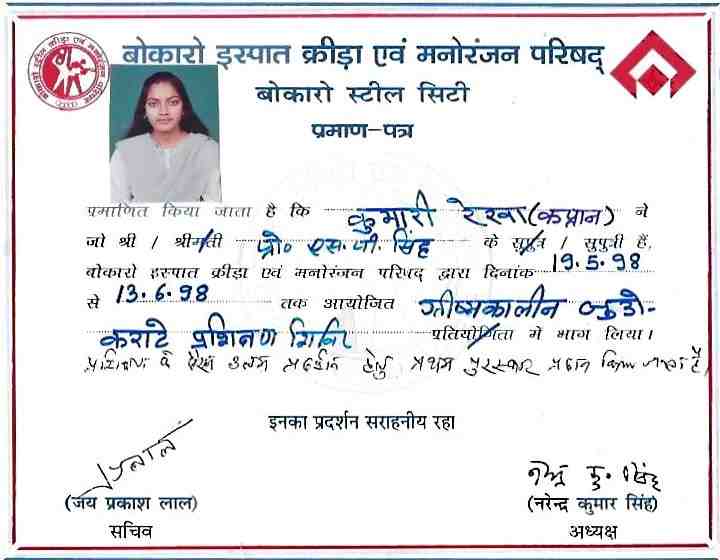 बोकारो इस्पात क्रीड़ा एवं मनोरंजन परिषद्
बोकारो स्टील सिटी
प्रमाण-पत्र
प्रमाणित किया जाता है कि कुमारी रेखा (कप्तान) ने
जो श्री / श्रीमती प्रो० एस. पी. सिंह के सुपुत्र / सुपुत्री हैं,
बोकारो इस्पात क्रीड़ा एवं मनोरंजन परिषद द्वारा दिनांक 19.5.98
से 13.6.98 तक आयोजित ग्रीष्मकालीन जुडो-
कराटे प्रशिक्षण शिविर प्रतियोगिता में भाग लिया।
प्रशिक्षण के दौरान उत्तम प्रदर्शन हेतु प्रथम पुरस्कार प्रदान किया जाता है
इनका प्रदर्शन सराहनीय रहा
(जय प्रकाश लाल)
सचिव
नरेन्द्र कु. सिंह
(नरेन्द्र कुमार सिंह)
अध्यक्ष